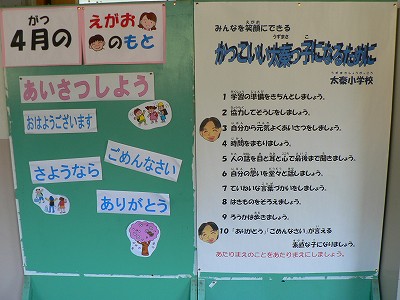 がつ
4月の
えがお
のもと
あいさつしよう
おはようございます
ごめんなさい
さようなら
ありがとう
みんなを笑顔にできる
かっこいい太秦っ子になるために
太秦小学校
1 学習の準備をきちんとしましょう。
2 協力してそうじをしましょう。
3 自分から元気よくあいさつをしましょう。
4 時間をまもりましょう。
5 人の話を目と耳と心で最後まで聞きましょう。
6 自分の思いを堂々と話しましょう。
7 ていねいな言葉づかいをしましょう。
8 はきものをそろえましょう。
9 ろうかは歩きましょう。
10 「ありがとう」「ごめんなさい」が言える
素直な子になりましょう。
あたりまえのことをあたりまえにしましょう。